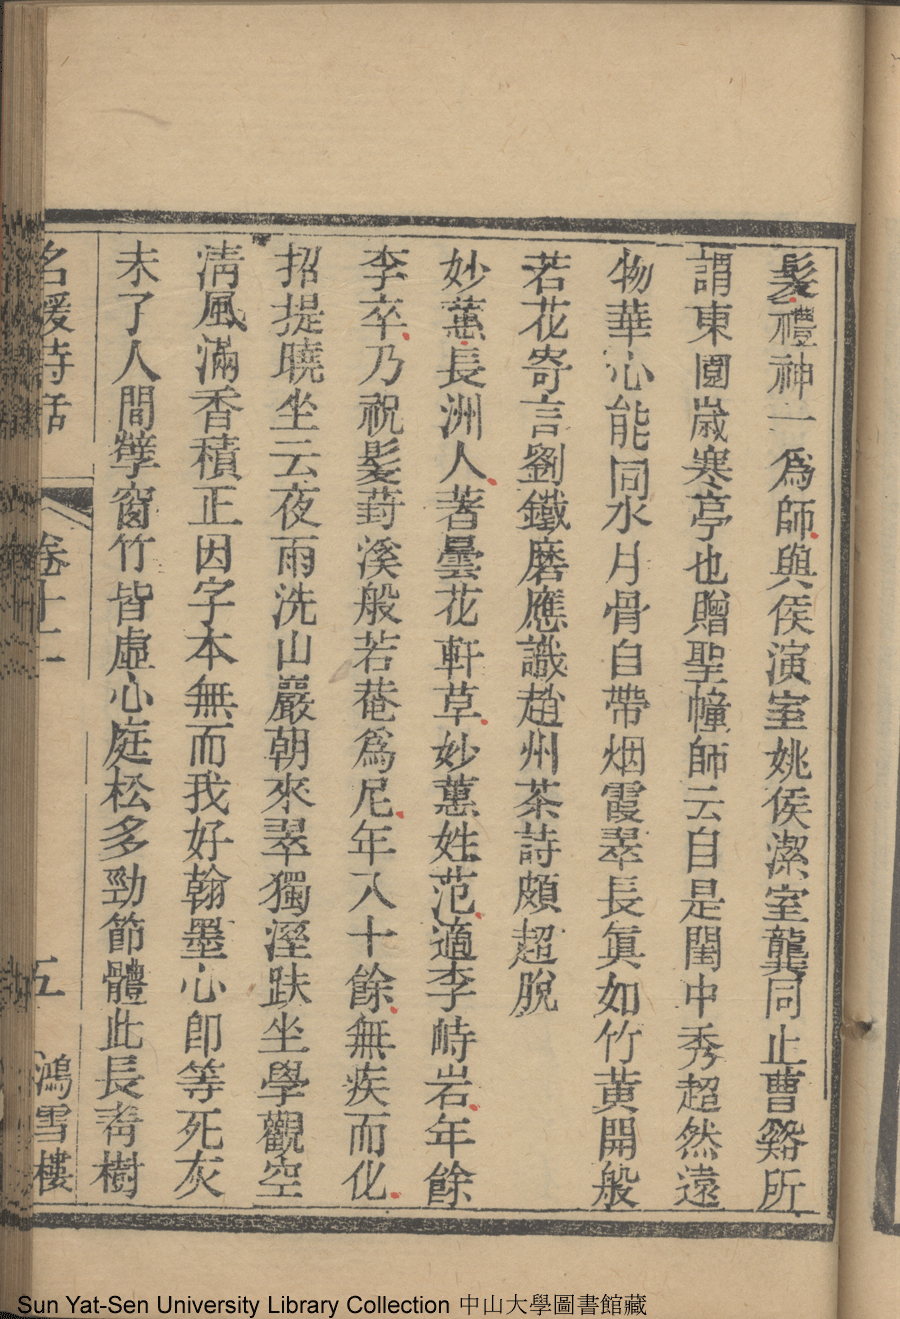 髮禮神一爲師與侯演室姚侯潔室龔同止曹谿所
謂東園歲寒亭也贈聖幢師云自是閨中秀超然遠
物華心能同水月骨自帶烟霞翠長眞如竹黃開般
若花寄言劉鐵磨應識趙州茶詩頗超脫
妙蕙長洲人著曇花軒草妙蕙姓范適李峙岩年餘
李卒乃祝髮葑溪般若菴爲尼年八十餘無疾而化
招提曉坐云夜雨洗山巖朝來翠獨溼趺坐學觀空
淸風滿香積正因字本無而我好翰墨心卽等死灰
未了人間孽窗竹皆虛心庭松多勁節體此長靑樹
名媛詩話 卷十二 五 鴻雪樓
Sun Yat-Sen University Library Collection 中山大學圖書館藏